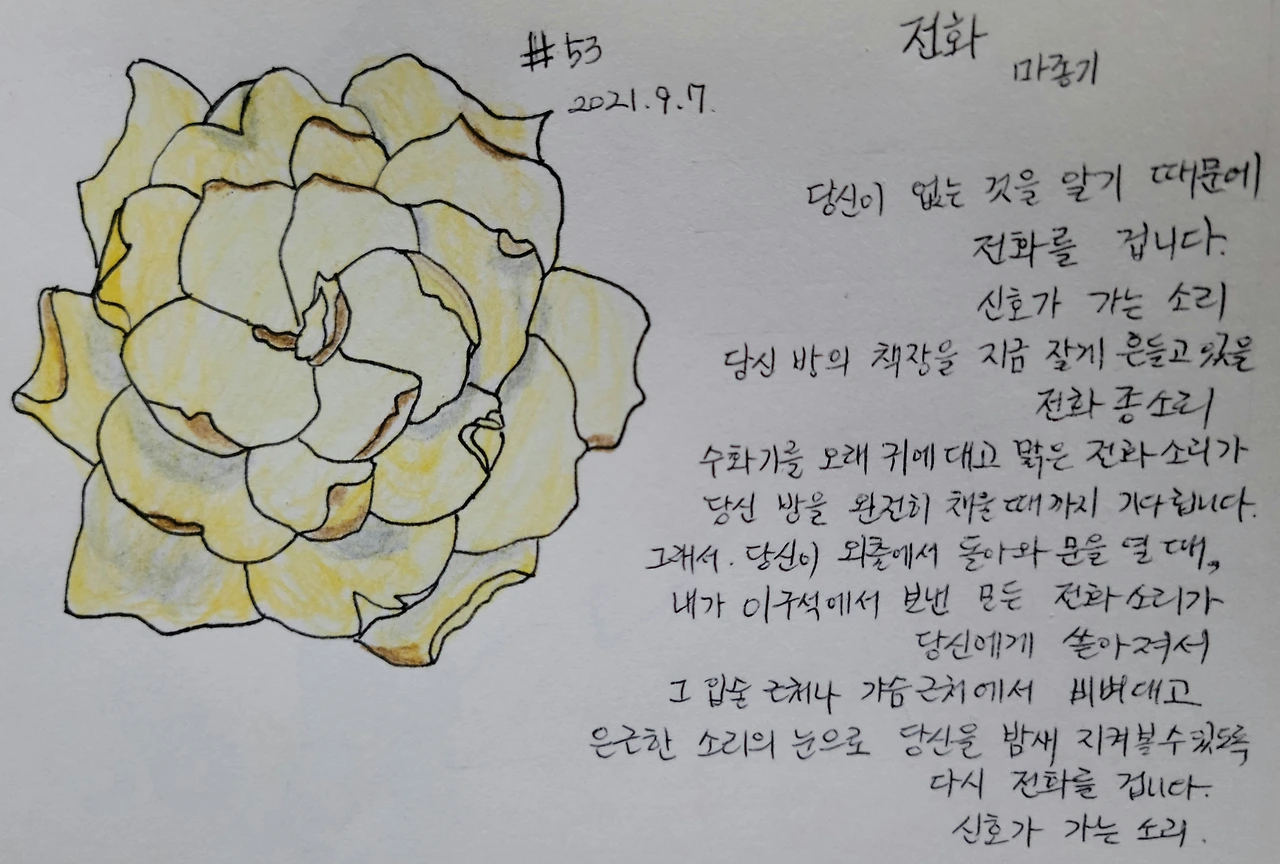 #53
2021.9.7.
전화
마종기
당신이 없는 것을 알기 때문에
전화를 겁니다.
신호가 가는 소리
당신 방의 책장을 지금 잘게 흔들고 있을
전화 종소리
수화기를 오래 귀에 대고 맑은 전화 소리가
당신 방을 완전히 채울 때까지 기다립니다.
그래서. 당신이 외출에서 돌아와 문을 열 때,
내가 이 구석에서 보낸 모든 전화 소리가
당신에게 쏟아져서
그 입술 근처나 가슴 근처에서 비벼대고
은근한 소리의 눈으로 당신을 밤새 지켜볼 수 있도록
다시 전화를 겁니다.
신호가 가는 소리.